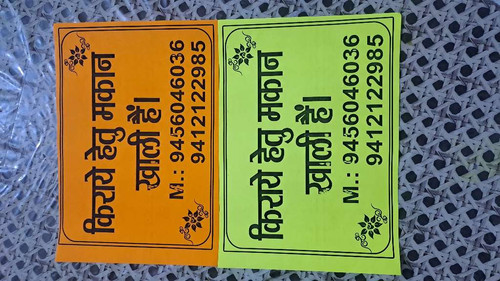 किराये हेतु मकान
खाली हैं।
M.: 9456046036
9412122985
किराये हेतु मकान
खाली हैं।
M.: 9456046036
9412122985